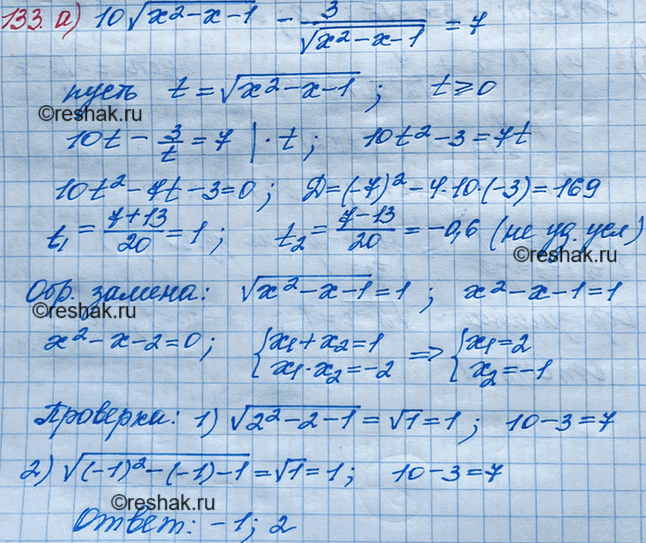 133. а) 10√(x²-x-1) - 3/√(x²-x-1) = 7
©reshak.ru
пусть t = √(x²-x-1) ; t ⩾ 0
©reshak.ru
10t - 3/t = 7 | · t ; 10t² - 3 = 7t
10t² - 7t - 3 = 0 ; Д = (-7)² - 4·10·(-3) = 169
t₁ = (7+13)/20 = 1 ; t₂ = (7-13)/20 = -0,6 (не уд. усл)
©reshak.ru
Обр. замена: √(x²-x-1) = 1 ; x²-x-1 = 1
©reshak.ru
x²-x-2 = 0 ; {x₁+x₂ = 1 x₁·x₂ = -2 => {x₁ = 2 x₂ = -1
Проверка: 1) √(2²-2-1) = √1 = 1 ; 10-3 = 7
2) √((-1)²-(-1)-1) = √1 = 1 ; 10-3 = 7
©reshak.ru
Ответ: -1; 2